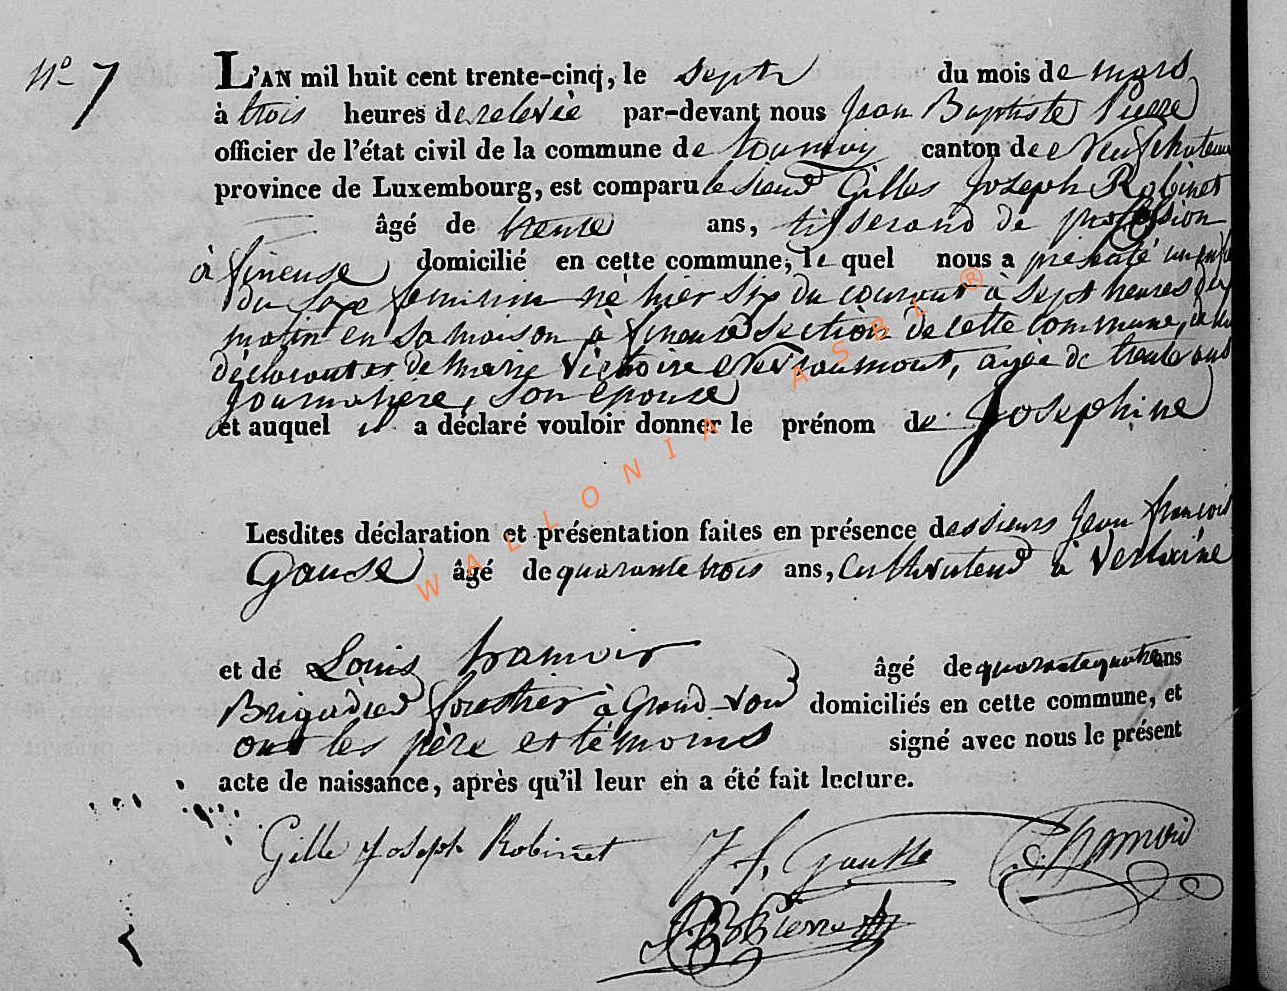 N° 7
L'AN mil huit cent trente-cinq, le sept du mois de mars
à trois heures de relevée par-devant nous Jean Baptiste Pierre
officier de l'état civil de la commune de tournay canton de Neufchateau
province de Luxembourg, est comparu le sieur Gilles Joseph Robinet
âgé de trente ans, tisserand de profession
à fineuse domicilié en cette commune, le quel nous a présenté un enfant
du sexe feminin né hier six du courant à sept heures du
matin en sa maison à fineuse section de cette commune, de lui
déclarant et de marie Victoire Nevraumont, agée de trente ans
journalière, son épouse
et auquel il a déclaré vouloir donner le prénom de Josephine
Lesdites déclaration et présentation faites en présence des sieurs Jean françois
Gause âgé de quarante trois ans, cultivateur à Verlaine
et de Louis hamoir âgé de quarante quatre ans
Brigadier forestier à Grand-Vou domiciliés en cette commune, et
ont les père et témoins signé avec nous le présent
acte de naissance, après qu'il leur en a été fait lecture.
Gille Joseph Robinet J. f. Gausse L. hamoir
J. B. Pierre
WALLONIA ASBL ®